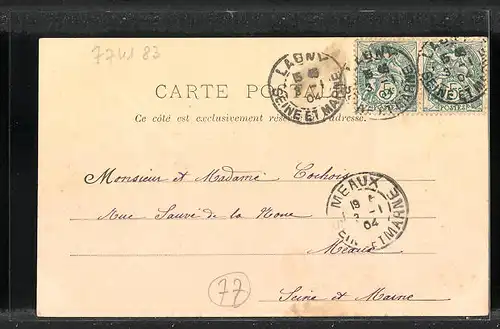 7741 83
LAGNY
SEINE ET MARNE
04
LAGNY
SEINE ET MARNE
04
POSTES
CARTE PO
Ce côté est exclusivement rése adresse.
Monsieur et Madame Cochois
MEAUX
19
04
Rue Sauvé de la Noue
Meaux
77
Seine et Marne